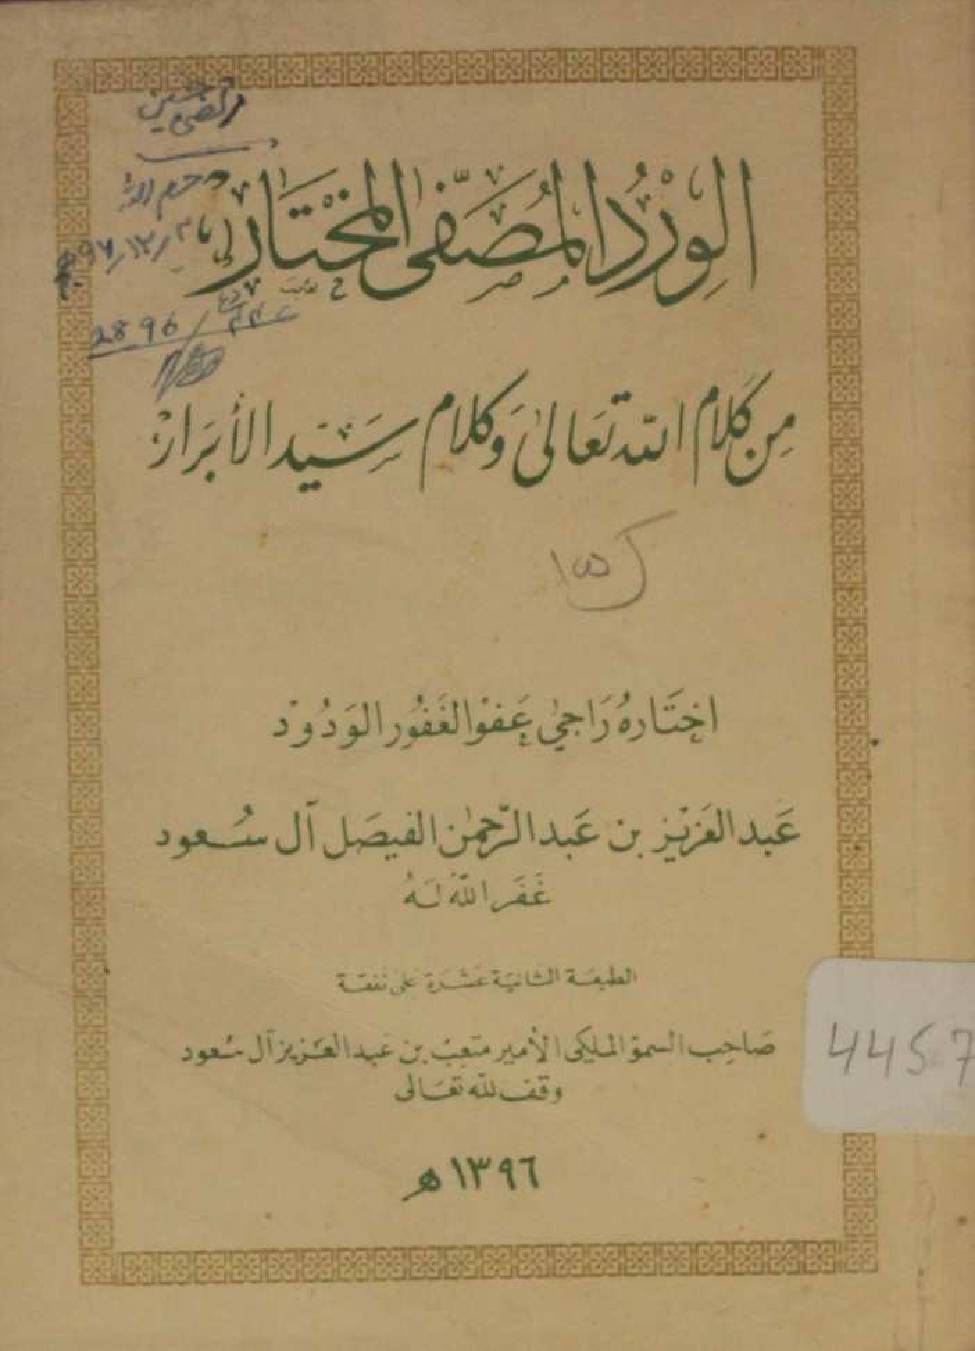 الوِرْدُ المُصَفّى المختَار
مِن كَلام الله تعَالىٰ وَكلام سَيّد الأبرَار
اختَارهُ رَاجيْ عَفو الغَفُور الوَدُوْد
عَبد العَزيْز بن عَبد الرّحمٰن الفيصَل آل سُعود
غَفَر اللهُ لَهُ
الطبعة الثانية عَشرَة على نفقة
صَاحِب السموّ الملكي الأمير متعِبْ بن عَبد العَزيز آل سُعود
وقف لله تعَالى
١٣٩٦ هـ
2896
4457